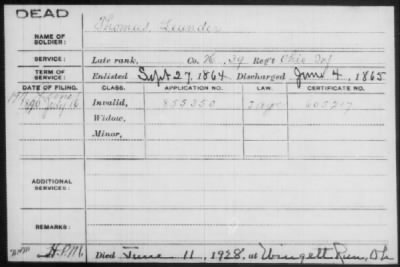 DEAD
Thomas, Leander
NAME OF SOLDIER:
SERVICE: Late rank, Co. K, 39 Reg't Ohio Inf
TERM OF SERVICE: Enlisted Sept 27, 1864 Discharged June 4, 1865
DATE OF FILING. CLASS. APPLICATION NO. LAW. CERTIFICATE NO.
1890 July 16 Invalid, 855350
Widow,
Minor,
ADDITIONAL SERVICES:
REMARKS:
Died June 11, 1928, at Wingett Run, Oh